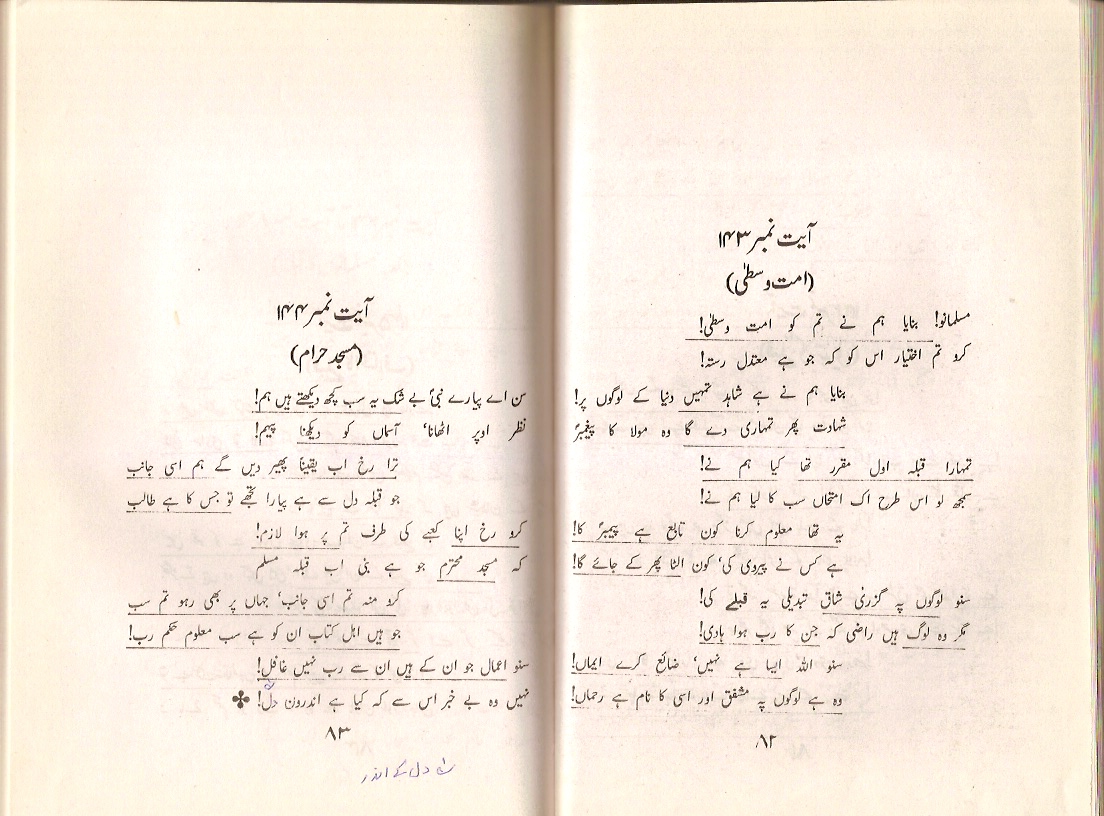 آیت نمبر ۱۴۳
(امت وسطیٰ)
مسلمانو! بنایا ہم نے تم کو امت وسطیٰ!
کرو تم اختیار اس کو کہ جو ہے معتدل رستہ!
بنایا ہم نے ہے شاہد تمہیں دنیا کے لوگوں پر!
شہادت پھر تمہاری دے گا وہ مولا کا پیغمبرؐ
تمہارا قبلہ اول مقرر تھا کیا ہم نے!
سمجھ لو اس طرح اک امتحاں سب کا لیا ہم نے!
یہ تھا معلوم کرنا کون تابع ہے پیمبرؐ کا!
ہے کس نے پیروی کی، کون الٹا پھر کے جائے گا!
سنو لوگوں پہ گزرنی شاق تبدیلی یہ قبلے کی!
مگر وہ لوگ ہیں راضی کہ جن کا رب ہوا ہادی!
سنو اللہ ایسا ہے نہیں، ضائع کرے ایماں!
وہ ہے لوگوں پہ مشفق اور اسی کا نام ہے رحماں!
۸۲
آیت نمبر ۱۴۴
(مسجد حرام)
سن اے پیارے نبیؐ بے شک یہ سب کچھ دیکھتے ہیں ہم!
نظر اوپر اٹھانا، آسماں کو دیکھنا پیہم!
ترا رخ اب یقیناً پھیر دیں گے ہم اسی جانب
جو قبلہ دل سے ہے پیارا تجھے تو جس کا ہے طالب
کرو رخ اپنا کعبے کی طرف تم پر ہوا لازم!
کہ مسجد محترم جو ہے بنی اب قبلہ مسلم
کرو منہ تم اسی جانب، جہاں پر بھی رہو تم سب
جو ہیں اہل کتاب ان کو ہے سب معلوم حکم رب!
سنو اعمال جو ان کے ہیں ان سے رب نہیں غافل!
نہیں وہ بے خبر اس سے کہ کیا ہے اندرون دل!
۸۳
دل کے اندر